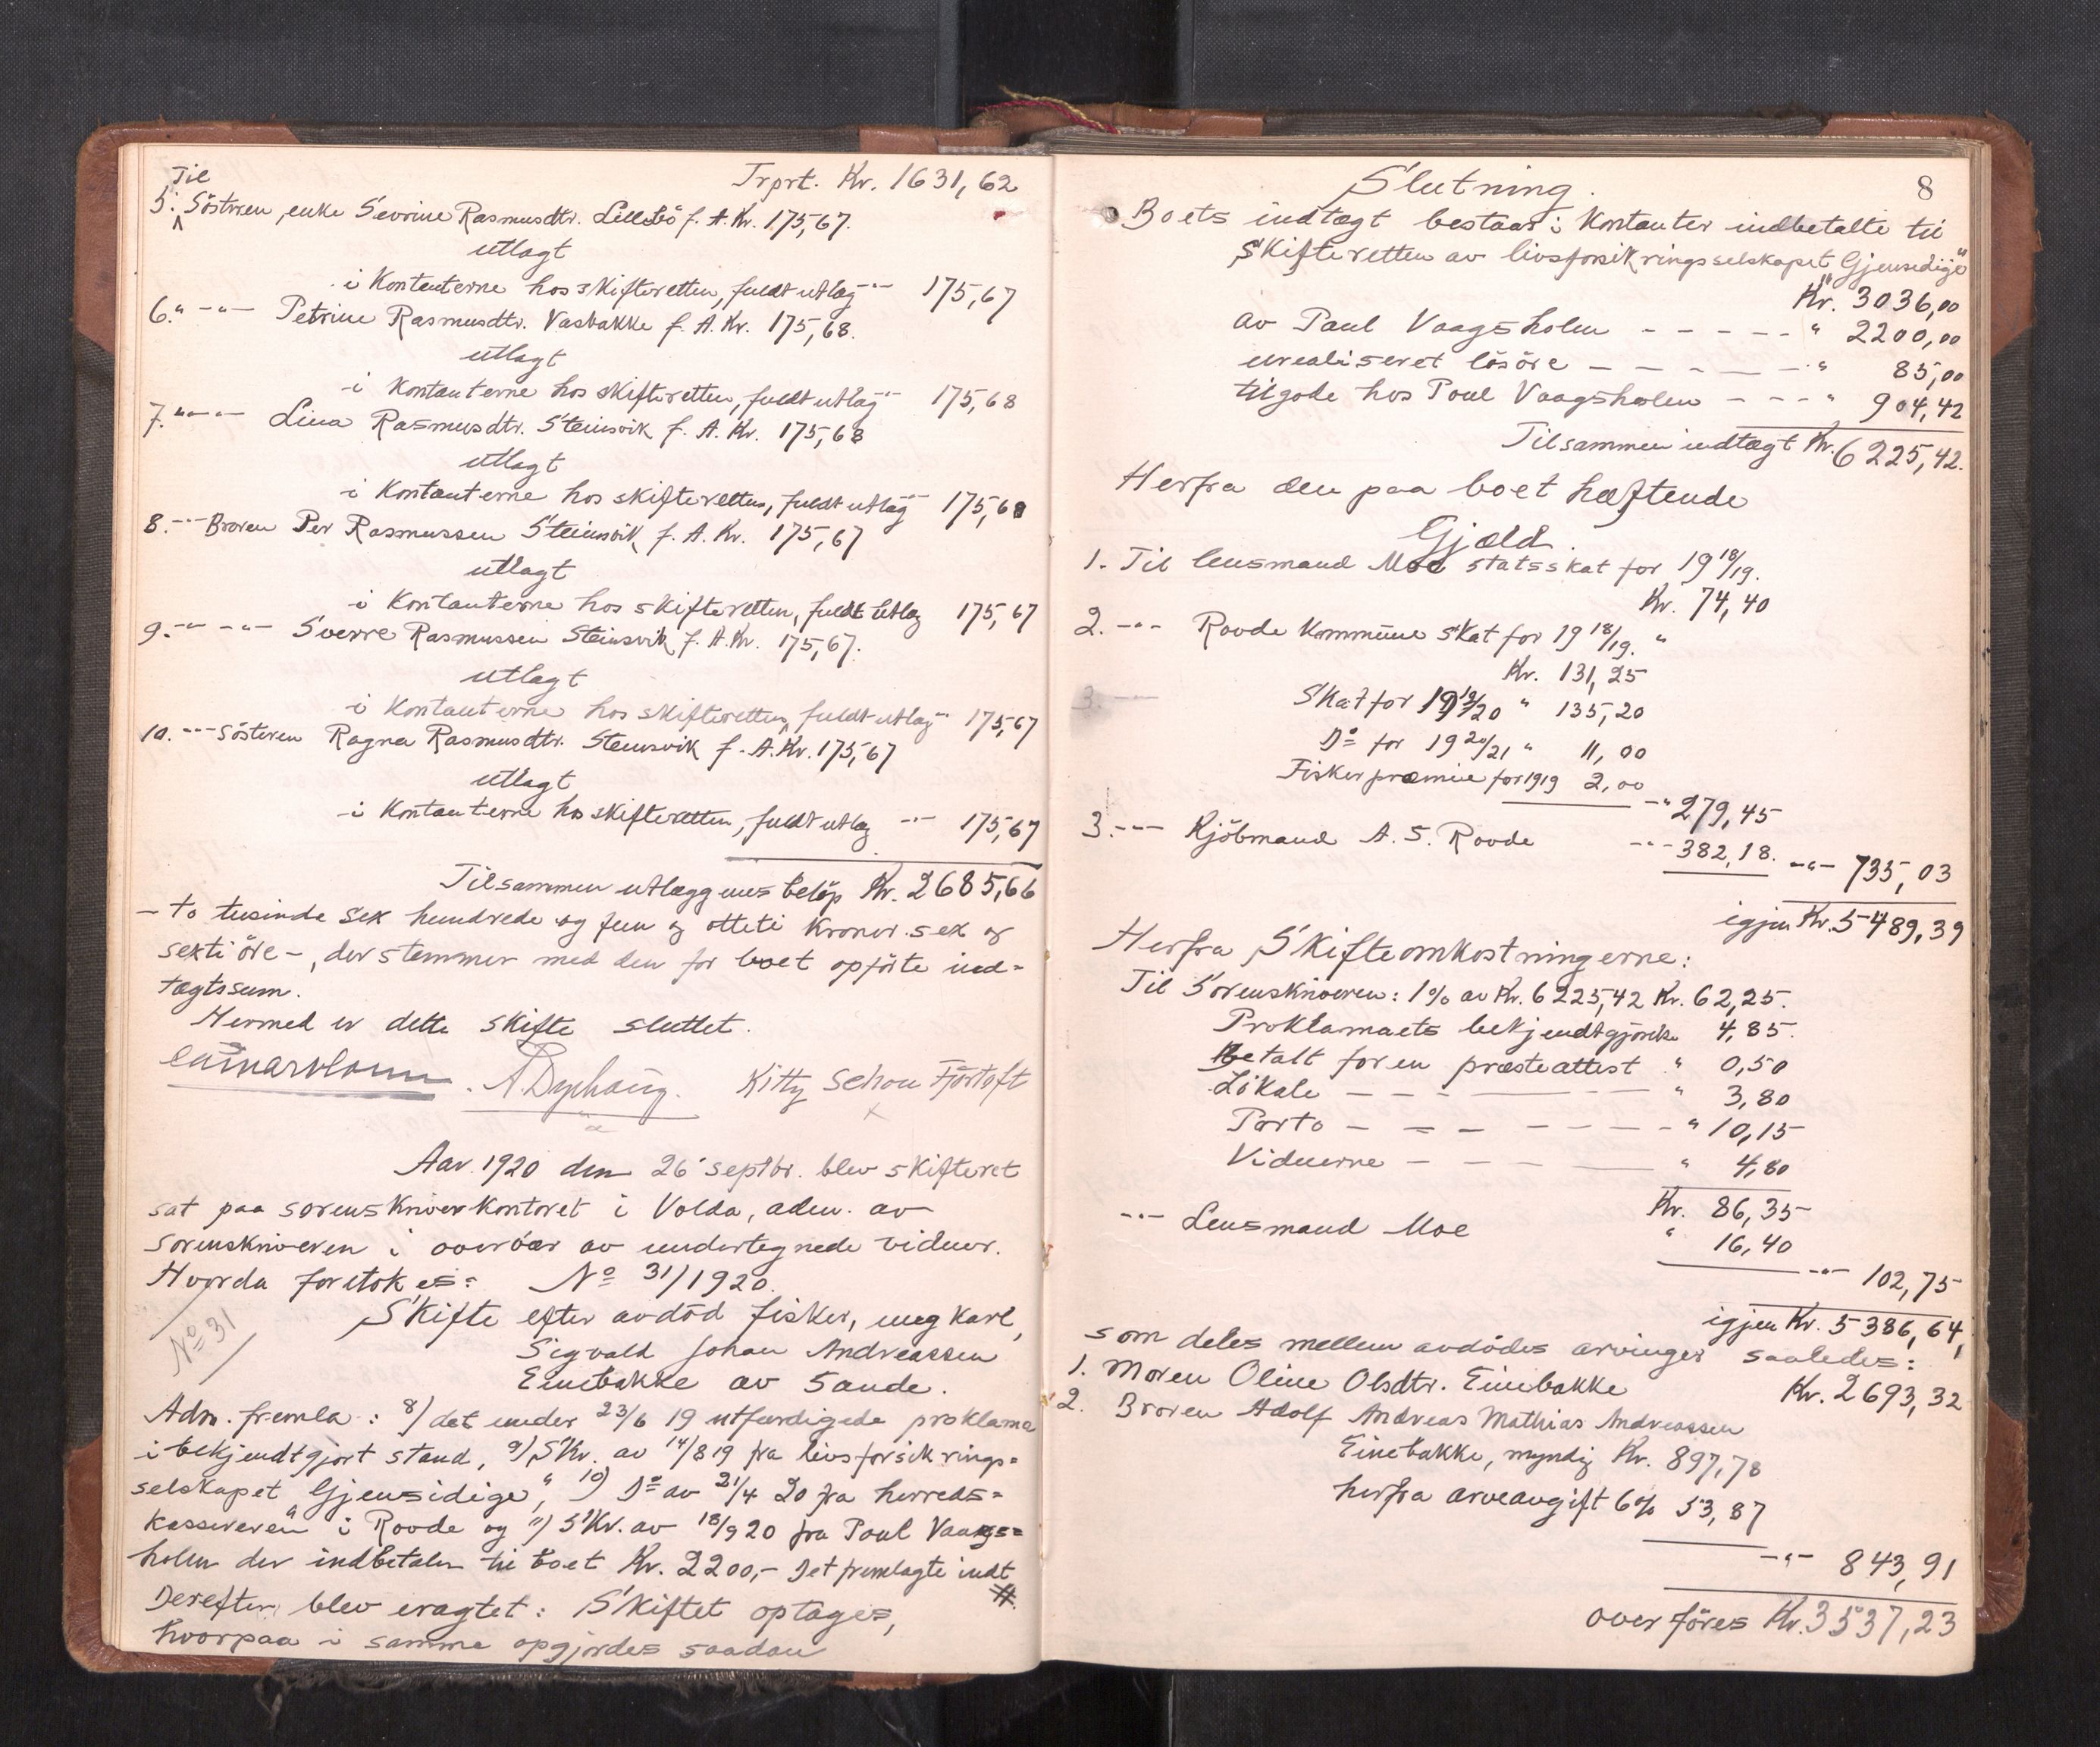 Trprt. Kr. 1631,62
Til
5. Söstren, enke Sevrine Rasmusdtr. Lillebö f. A. Kr. 175,67.
utlagt
i Kontanterne hos skifteretten, fuldt utlæg -"- 175,67
6. " -"- Petrine Rasmusdtr. Vasbakke f. A. Kr. 175,68.
utlagt
i Kontanterne hos skifteretten, fuldt utlæg -"- 175,68
7. " -"- Lina Rasmusdtr. Steinsvik f. A. Kr. 175,68
utlagt
i Kontanterne hos skifteretten, fuldt utlæg -"- 175,68
8. -"- Broren Per Rasmussen Steinsvik f. A. Kr. 175,67
utlagt
i Kontanterne hos skifteretten, fuldt utlæg 175,67
9. -"- -"- Sverre Rasmussen Steinsvik f. A. Kr. 175,67.
utlagt
i Kontanterne hos skifteretten, fuldt utlæg -"- 175,67
10. -"- Söstren Ragna Rasmusdtr. Steinsvik f. A. Kr. 175,67
utlagt
i Kontanterne hos skifteretten, fuldt utlæg -"- 175,67
Tilsammen utlæggenes belöp Kr. 2685,66
- to tusinde sex hundrede og fem og otteti kroner sex og
sexti öre -, der stemmer med den for boet opförte ind=
tægtssum.
Hermed er dette skifte sluttet.
Kitty Schou Fjörtoft
Aar 1920 den 26' septbr. blev skifteret
sat paa sorenskriverkontoret i Volda, adm. av
sorenskriveren i overvær av undertegnede vidner.
Hvorda foretokes: No 31/1920.
No 31
Skifte efter avdöd fisker, ungkarl,
Sigvald Johan Andreassen
Einebakke av Sande.
Adm. fremla: 8) det under 23/6 19 utfærdigede proklama
i bekjendtgjort stand, 9) Skr. av 14/8 19 fra livsforsikrings=
selskapet "Gjensidige", 10) Do av 21/4 20 fra herreds=
kassereren i Rovde og 11) Skr. av 18/9 20 fra Paul Vaags=
holm der indbetaler til boet Kr. 2200,- Det fremlagte indt
#.
Derefter blev eragtet: Skiftet optages,
hvorpaa i samme opgjordes saadan
8
Slutning.
Boets indtægt bestaar i Kontanter indbetalte til
Skifteretten av livsforsikringsselskapet "Gjensidige"
Kr. 3036,00
av Paul Vaagsholm - - - - - " 2200,00
urealiseret lösöre - - - - - " 85,00
tilgode hos Poul Vaagsholm - - - " 904,42
Tilsammen indtægt Kr. 6225,42.
Herfra den paa boet hæftende
Gjæld.
1. Til lensmand Moe statsskat for 19 18/19.
Kr. 74,40
2. -"- Rovde Kommune Skat for 19 18/19. "
Kr. 131,25
3. -"- Skat for 19 19/20 " 135,20
Do for 19 20/21 " 11,00
Fiskerpræmie for 1919 2,00
-"- 279,45
3. -"- Kjöbmand A. S. Rovde -"- 382,18. -"- 735,03
igjen Kr. 5489,39
Herfra Skifteomkostningerne:
Til Sorenskriveren: 1% av Kr. 6225,42 Kr. 62,25.
Proklamaets bekjendtgjörelse 4,85.
Betalt for en præsteattest " 0,50
Lokale - - - - - " 3,80
Porto - - - - - - " 10,15
Vidnerne - - - - " 4,80
Kr. 86,35
-"- Lensmand Moe " 16,40
-"- 102,75
igjen Kr. 5386,64,
som deles mellem avdödes arvinger saaledes:
1. Moren Oline Olsdtr. Einebakke Kr. 2693,32
2. Broren Adolf Andreas Mathias Andreassen
Einebakke, myndig Kr. 897,78
herfra arveavgift 6% 53,87
-"- 843,91
overföres Kr. 3537,23